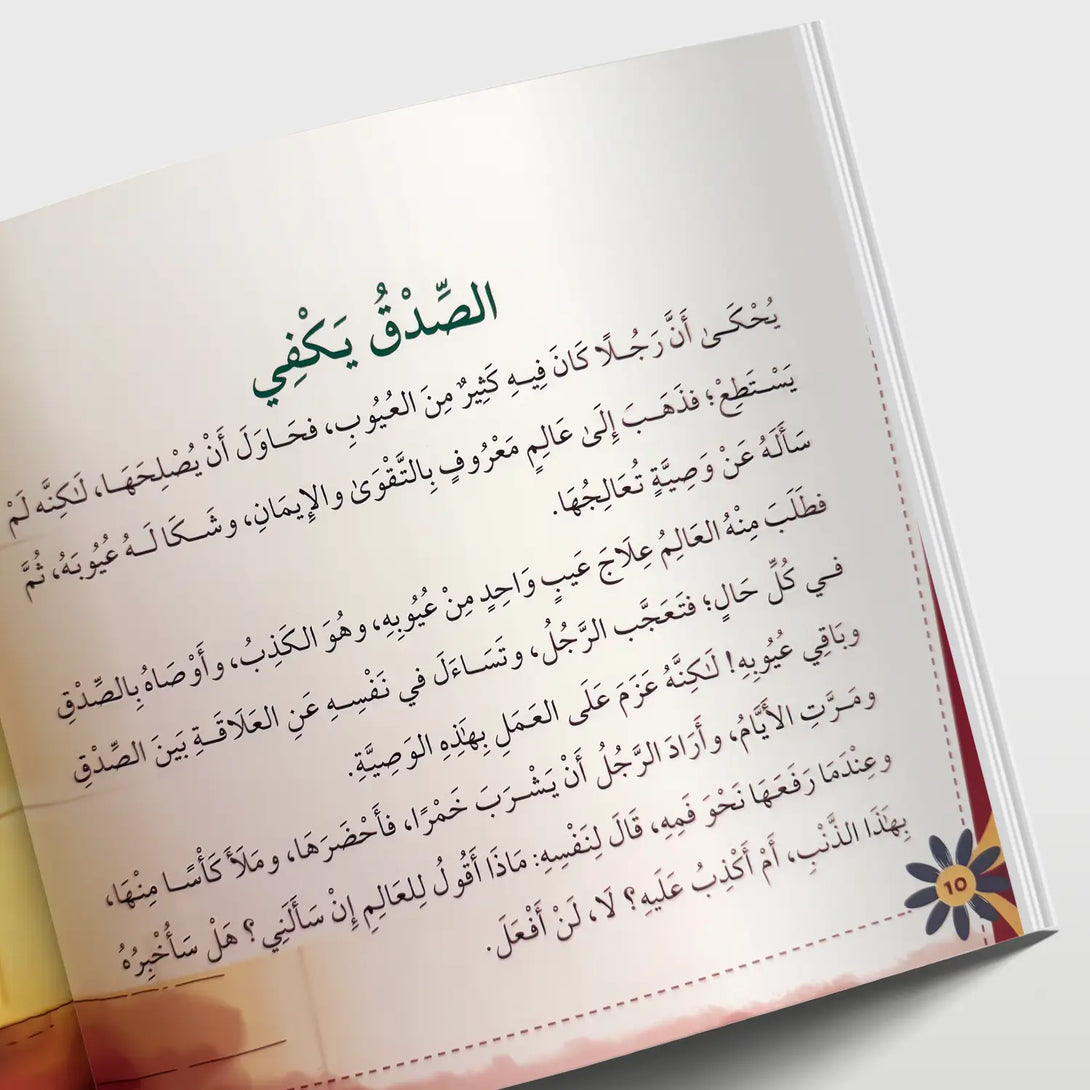 الصِّدْقُ يَكْفِي
يُحْكَىٰ أَنَّ رَجُلًا كَانَ فِيهِ كَثِيرٌ مِنَ العُيُوبِ، فحَاوَلَ أَنْ يُصْلِحَهَا، لَٰكِنَّه لَمْ
يَسْتَطِعْ؛ فذَهَبَ إِلَىٰ عَالِمٍ مَعْرُوفٍ بِالتَّقْوَىٰ والإِيمَانِ، وشَكَا لَهُ عُيُوبَهُ، ثُمَّ
سَأَلَهُ عَنْ وَصِيَّةٍ تُعَالِجُهَا.
فطَلَبَ مِنْهُ العَالِمُ عِلَاجَ عَيبٍ وَاحِدٍ مِنْ عُيُوبِهِ، وهُوَ الكَذِبُ، وأَوْصَاهُ بِالصِّدْقِ
في كُلِّ حَالٍ؛ فتَعَجَّب الرَّجُلُ، وتَسَاءَلَ في نَفْسِهِ عَنِ العَلَاقَةِ بَينَ الصِّدْقِ
وبَاقِي عُيُوبِهِ! لَٰكِنَّهُ عَزَمَ عَلَى العَمَلِ بِهَٰذِهِ الوَصِيَّةِ.
ومَرَّتِ الأَيَّامُ، وأَرَادَ الرَّجُلُ أَنْ يَشْرَبَ خَمْرًا، فأَحْضَرَهَا، ومَلَأَ كَأْسًا مِنْهَا،
وعِنْدَمَا رَفَعَهَا نَحْوَ فَمِهِ، قَالَ لِنَفْسِهِ: مَاذَا أَقُولُ لِلعَالِمِ إِنْ سَأَلَنِي؟ هَلْ سَأُخْبِرُهُ
بِهَٰذَا الذَّنْبِ، أَمْ أَكْذِبُ عَلَيهِ؟ لَا، لَنْ أَفْعَلَ.
10